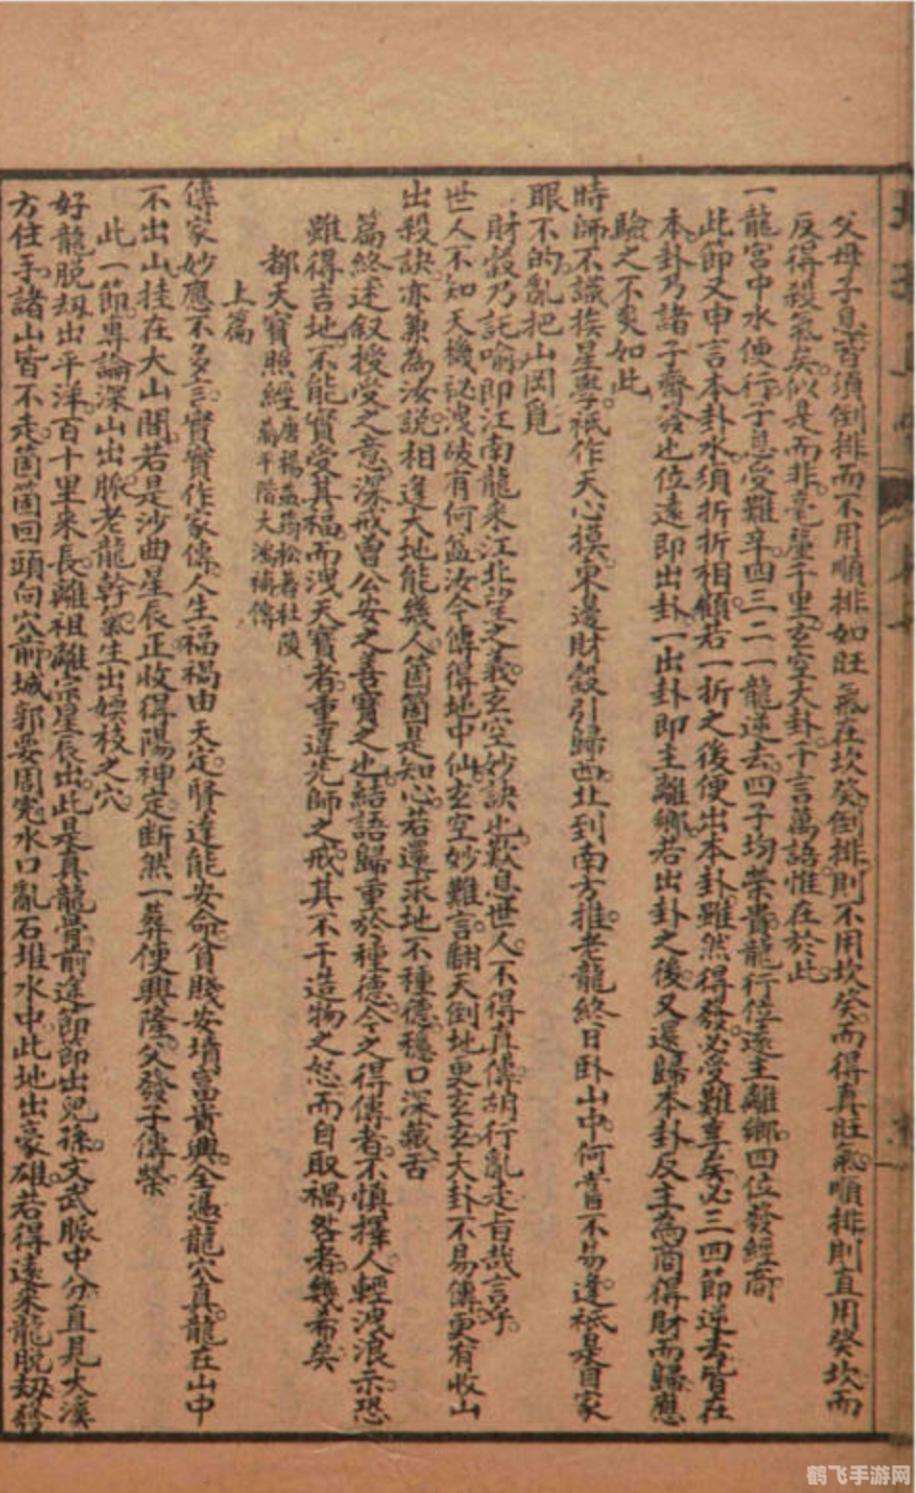 父母子息皆須倒排而不用順排如旺氣在坎癸倒排則不用坎癸而得真旺氣順排則直用癸坎而
反得殺氣矣似是而非毫釐千里玄空大卦千言萬語惟在於此
一龍宮中水便行子息受難辛四三二一龍逆去四子均榮貴龍行位遠主離鄉四位發經商
此節又申言本卦水須折折相顧若一折之後便出本卦雖然得發必受難辛矣必三四節逆去皆在
本卦乃諸子齊發也位遠即出卦一出卦即主離鄉若出卦之後又還歸本卦反主為商得財而歸應
驗之不爽如此
時師不識挨星學祗作天心摸東邊財穀引歸西北到南方推老龍終日卧山中何嘗不易逢祗是自家
眼不的亂把山岡覓
財穀乃託喻即江南龍來江北望之義玄空妙訣也歎息世人不得真傳胡行亂走旨哉言乎
世人不知天機祕洩破有何益汝今傳得地中仙玄空妙難言翻天倒地更玄玄大卦不易傳更有收山
出殺訣亦兼為汝說相逢大地能幾人箇箇是知心若還求地不種德穩口深藏舌
篇終述叙授受之意深戒曾公安之善寶之也結語歸重於種德今之得傳者不慎擇人輕洩浪示恐
雖得吉地不能實受其福而洩天寶者重違先師之戒其不干造物之怒而自取禍咎者幾希矣
都天寶照經 唐楊益筠松著杜陵
蔣平階大鴻補傳
上篇
傳家妙應不多言實實作家傳人生福禍由天定賢達能安命貧賤安墳富貴興全憑龍穴真龍在山中
不出山挂在大山間若是沙曲星辰正收得陽神定断然一葬便興隆父發子傳榮
此一節專論深山出脈老龍幹氣生出嫩枝之穴
好龍脫刼出平洋百十里來長離祖離宗星辰出此是真龍骨前途節節出兒孫文武脈中分直見大溪
方住手諸山皆不走箇箇回頭向穴前城郭要周完水口亂石堆水中此地出豪雄若得遠來龍脫刼發
鹤飞手游网